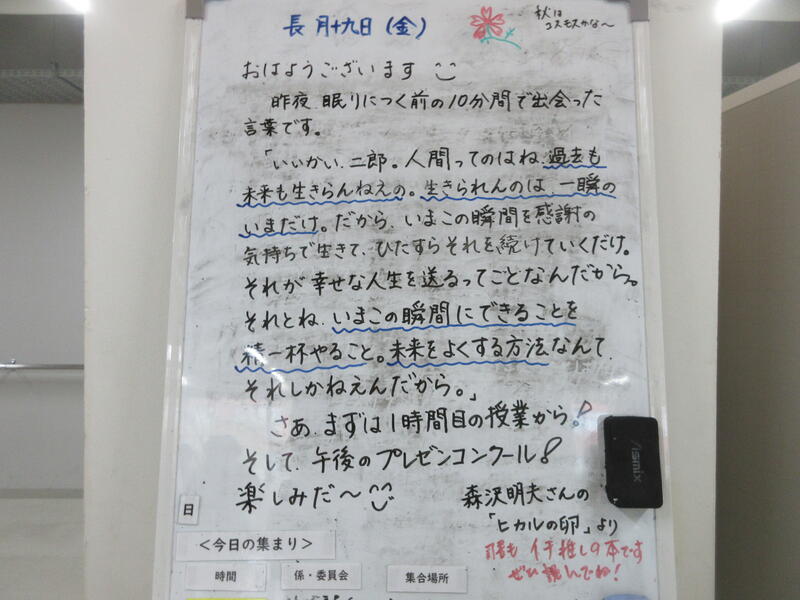 長月十九日(金)
秋は
コスモスかな～
おはようございます
昨夜、眠りにつく前の10分間で出会った
言葉です。
「いいかい、二郎。人間ってのはね、過去も
未来も生きらんねえの。生きられんのは、一瞬の
いまだけ。だから、いまこの瞬間を感謝の
気持ちで生きて、ひたすらそれを続けていくだけ。
それが幸せな人生を送るってことなんだから。
それとね、いまこの瞬間にできることを
精一杯やること。未来をよくする方法なんて、
それしかねえんだから。」
さあ、まずは1時間目の授業から!
そして、午後のプレゼンコンクール!
楽しみだ～
森沢明夫さんの
「ヒカルの卵」より
イチ推しの本です
ぜひ読んでね!
日
<今日の集まり>
時間 係・委員会 集合場所
Asmix